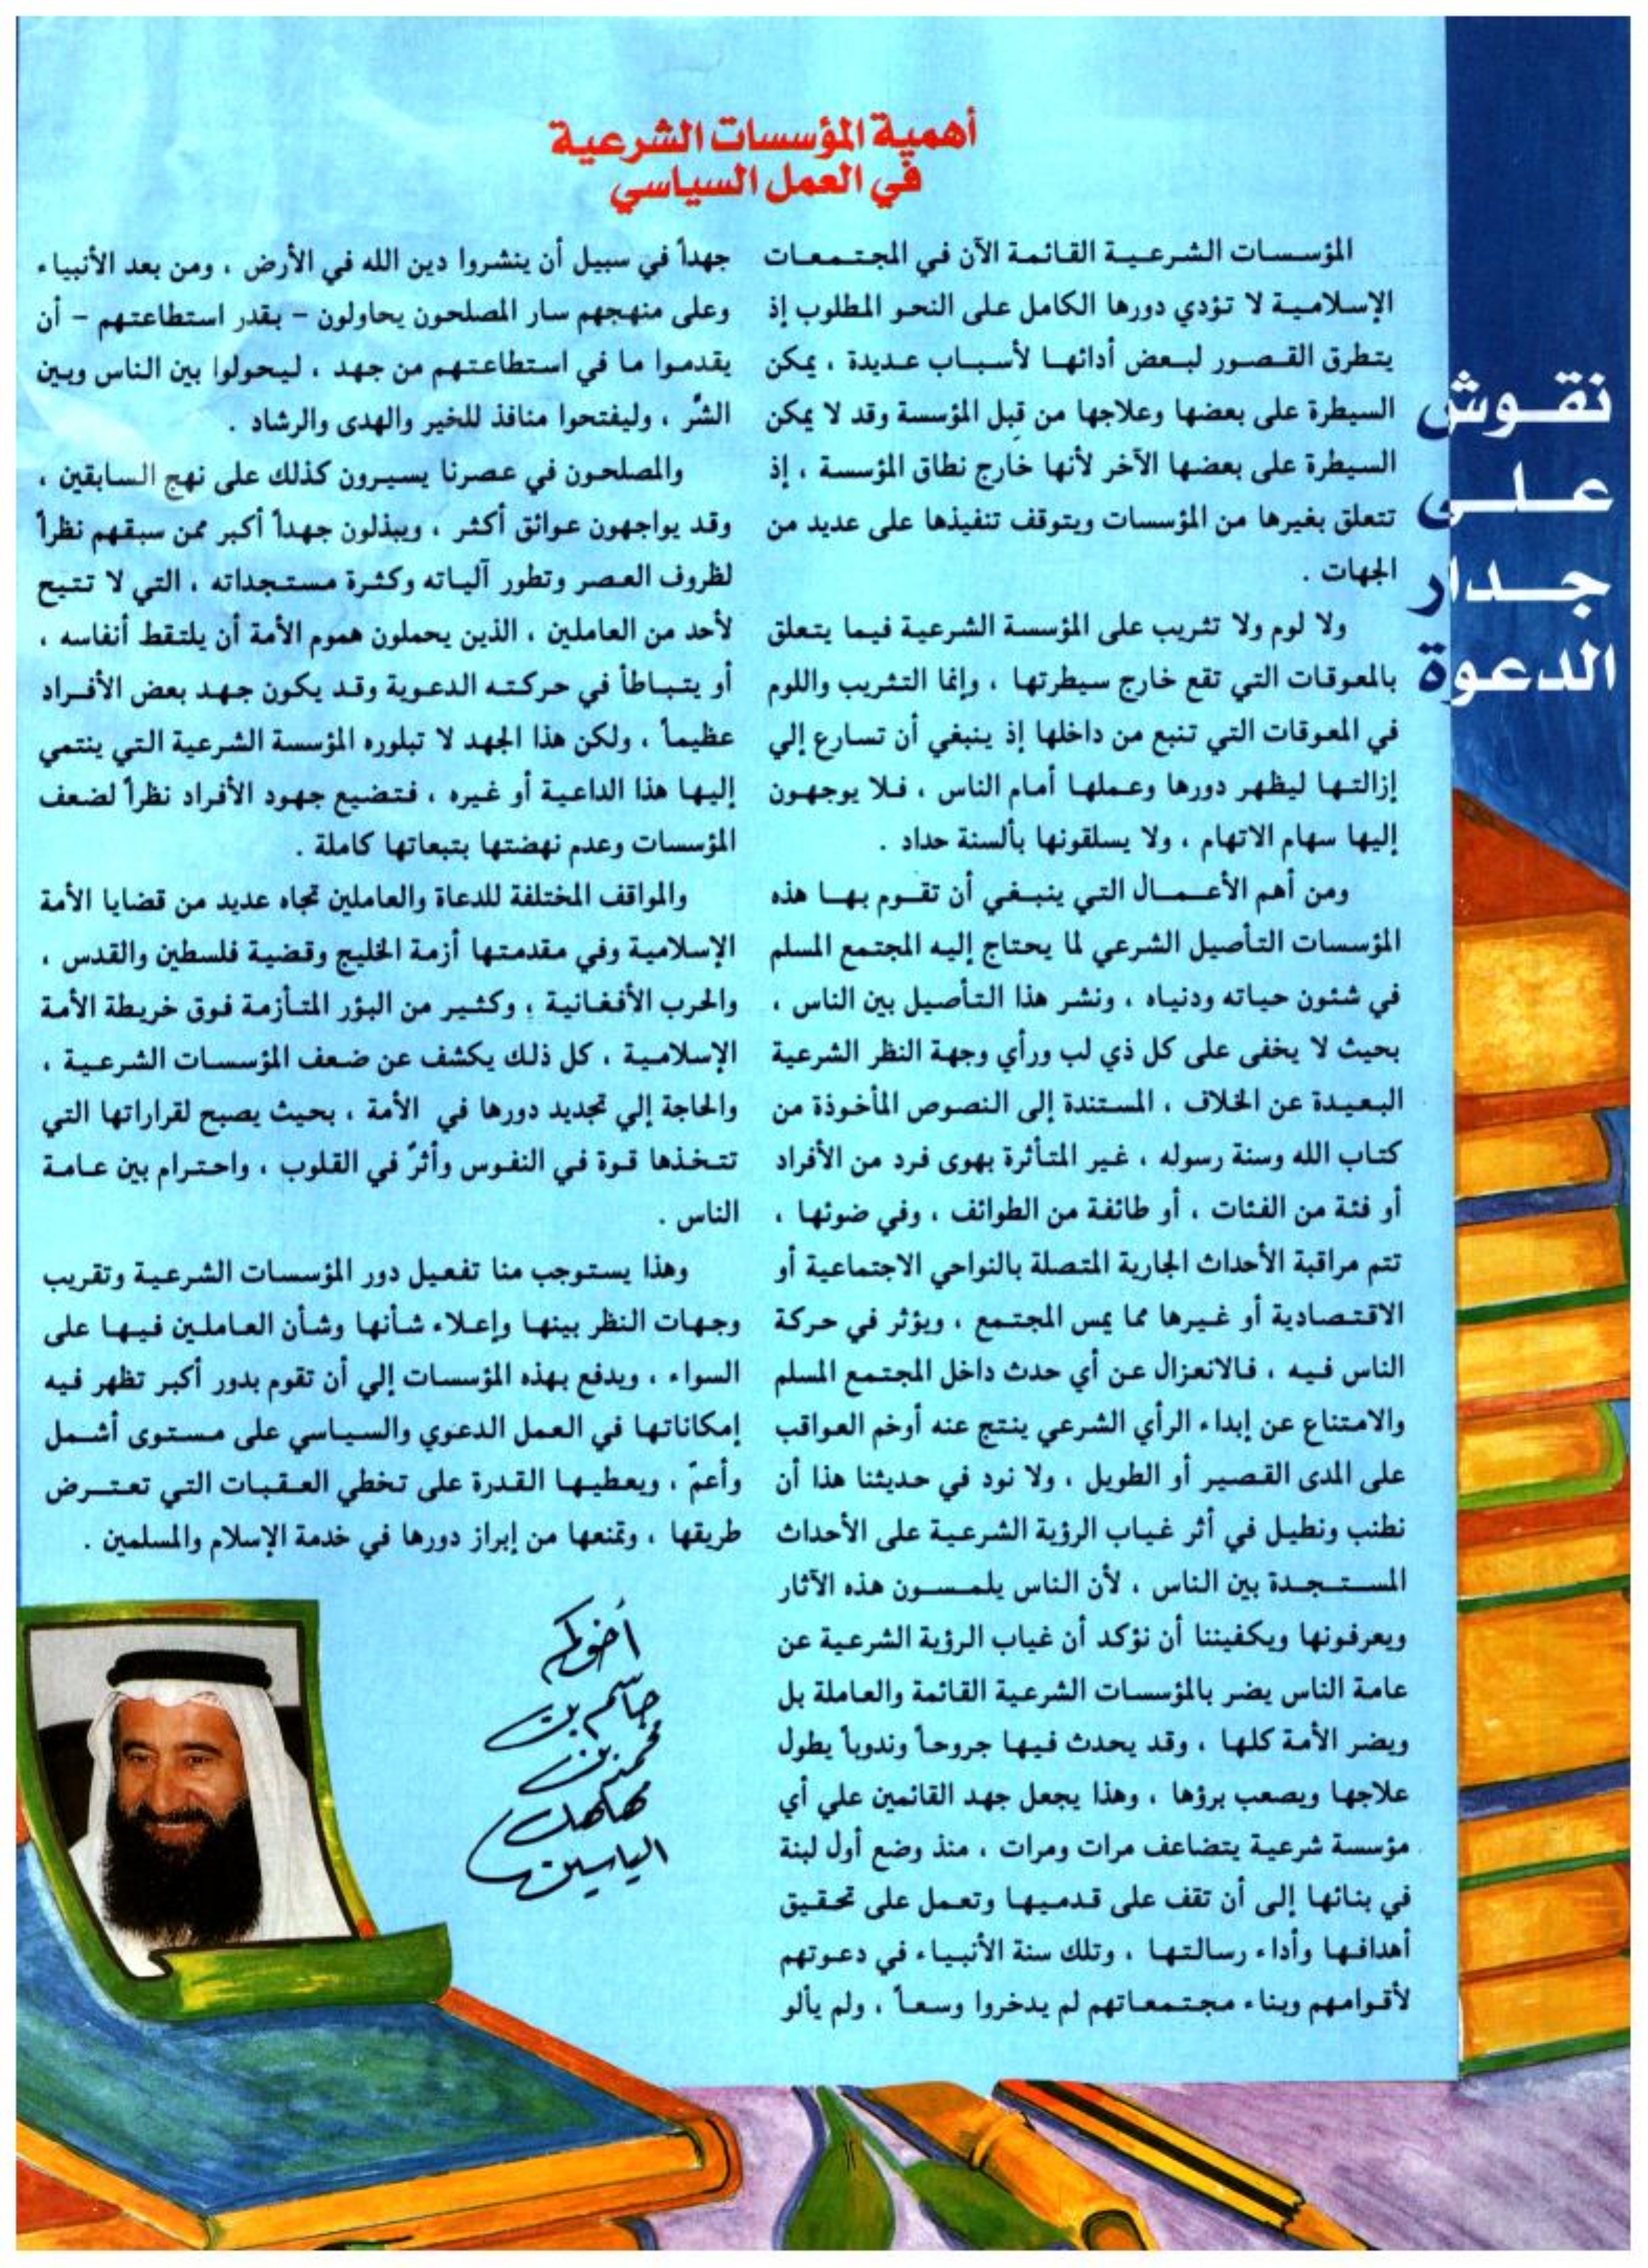 أهمية المؤسسات الشرعية
في العمل السياسي
نقوش
على
جدار
الدعوة
المؤسسات الشرعية القائمة الآن في المجتمعات
الإسلامية لا تؤدي دورها الكامل على النحو المطلوب إذ
يتطرق القصور لبعض أدائها لأسباب عديدة ، يمكن
السيطرة على بعضها وعلاجها من قبل المؤسسة وقد لا يمكن
السيطرة على بعضها الآخر لأنها خارج نطاق المؤسسة ، إذ
تتعلق بغيرها من المؤسسات ويتوقف تنفيذها على عديد من
الجهات .
ولا لوم ولا تثريب على المؤسسة الشرعية فيما يتعلق
بالمعوقات التي تقع خارج سيطرتها ، وإنما التثريب واللوم
في المعوقات التي تنبع من داخلها إذ ينبغي أن تسارع إلي
إزالتها ليظهر دورها وعملها أمام الناس ، فلا يوجهون
إليها سهام الاتهام ، ولا يسلقونها بألسنة حداد .
ومن أهم الأعمال التي ينبغي أن تقوم بها هذه
المؤسسات التأصيل الشرعي لما يحتاج إليه المجتمع المسلم
في شئون حياته ودنياه ، ونشر هذا التأصيل بين الناس ،
بحيث لا يخفى على كل ذي لب ورأي وجهة النظر الشرعية
البعيدة عن الخلاف ، المستندة إلى النصوص المأخوذة من
كتاب الله وسنة رسوله ، غير المتأثرة بهوى فرد من الأفراد
أو فئة من الفئات ، أو طائفة من الطوائف ، وفي ضوئها ،
تتم مراقبة الأحداث الجارية المتصلة بالنواحي الاجتماعية أو
الاقتصادية أو غيرها مما يمس المجتمع ، ويؤثر في حركة
الناس فيه ، فالانعزال عن أي حدث داخل المجتمع المسلم
والامتناع عن إبداء الرأي الشرعي ينتج عنه أوخم العواقب
على المدى القصير أو الطويل ، ولا نود في حديثنا هذا أن
نطنب ونطيل في أثر غياب الرؤية الشرعية على الأحداث
المستجدة بين الناس ، لأن الناس يلمسون هذه الآثار
ويعرفونها ويكفيننا أن نؤكد أن غياب الرؤية الشرعية عن
عامة الناس يضر بالمؤسسات الشرعية القائمة والعاملة بل
ويضر الأمة كلها ، وقد يحدث فيها جروحاً وندوباً يطول
علاجها ويصعب برؤها ، وهذا يجعل جهد القائمين علي أي
مؤسسة شرعية يتضاعف مرات ومرات ، منذ وضع أول لبنة
في بنائها إلى أن تقف على قدميها وتعمل على تحقيق
أهدافها وأداء رسالتها ، وتلك سنة الأنبياء في دعوتهم
لأقوامهم وبناء مجتمعاتهم لم يدخروا وسعاً ، ولم يألو
جهداً في سبيل أن ينشروا دين الله في الأرض ، ومن بعد الأنبياء
وعلى منهجهم سار المصلحون يحاولون – بقدر استطاعتهم – أن
يقدموا ما في استطاعتهم من جهد ، ليحولوا بين الناس وبين
الشّر ، وليفتحوا منافذ للخير والهدى والرشاد .
والمصلحون في عصرنا يسيرون كذلك على نهج السابقين ،
وقد يواجهون عوائق أكثر ، ويبذلون جهداً أكبر ممن سبقهم نظراً
لظروف العصر وتطور آلياته وكثرة مستجداته ، التي لا تتيح
لأحد من العاملين ، الذين يحملون هموم الأمة أن يلتقط أنفاسه ،
أو يتباطأ في حركته الدعوية وقد يكون جهد بعض الأفراد
عظيماً ، ولكن هذا الجهد لا تبلوره المؤسسة الشرعية التي ينتمي
إليها هذا الداعية أو غيره ، فتضيع جهود الأفراد نظراً لضعف
المؤسسات وعدم نهضتها بتبعاتها كاملة .
والمواقف المختلفة للدعاة والعاملين تجاه عديد من قضايا الأمة
الإسلامية وفي مقدمتها أزمة الخليج وقضية فلسطين والقدس ،
والحرب الأفغانية ، وكثير من البؤر المتأزمة فوق خريطة الأمة
الإسلامية ، كل ذلك يكشف عن ضعف المؤسسات الشرعية ،
والحاجة إلي تجديد دورها في الأمة ، بحيث يصبح لقراراتها التي
تتخذها قوة في النفوس وأثرٌ في القلوب ، واحترام بين عامة
الناس .
وهذا يستوجب منا تفعيل دور المؤسسات الشرعية وتقريب
وجهات النظر بينها وإعلاء شأنها وشأن العاملين فيها على
السواء ، ويدفع بهذه المؤسسات إلي أن تقوم بدور أكبر تظهر فيه
إمكاناتها في العمل الدعوي والسياسي على مستوى أشمل
وأعمّ ، ويعطيها القدرة على تخطي العقبات التي تعترض
طريقها ، وتمنعها من إبراز دورها في خدمة الإسلام والمسلمين .
أخوكم
جاسم بن
محمد بن
مهلهل
الياسين